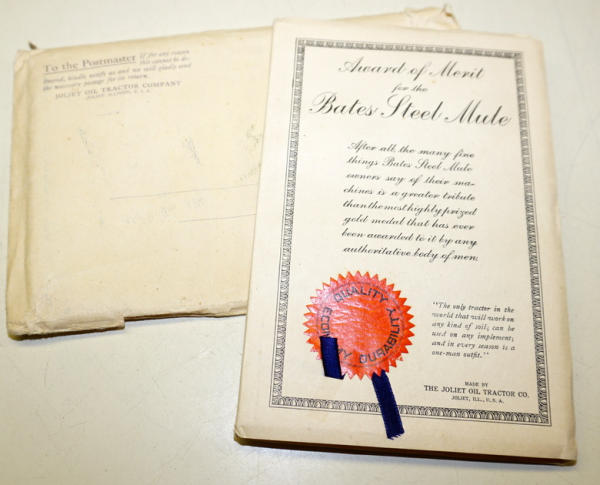 To the Postmaster If for any reason
this cannot be de-
livered, kindly notify us and we will gladly send
the necessary postage for its return.
JOLIET OIL TRACTOR COMPANY
JOLIET, ILLINOIS, U. S. A.
Award of Merit
for the
Bates Steel Mule
After all, the many fine
things Bates Steel Mule
owners say of their ma-
chines is a greater tribute
than the most highly prized
gold medal that has ever
been awarded to it by any
authoritative body of men.
QUALITY
DURABILITY
"The only tractor in the
world that will work on
any kind of soil; can be
used on any implement;
and in every season is a
one-man outfit."
MADE BY
THE JOLIET OIL TRACTOR CO.
JOLIET, ILL., U. S. A.